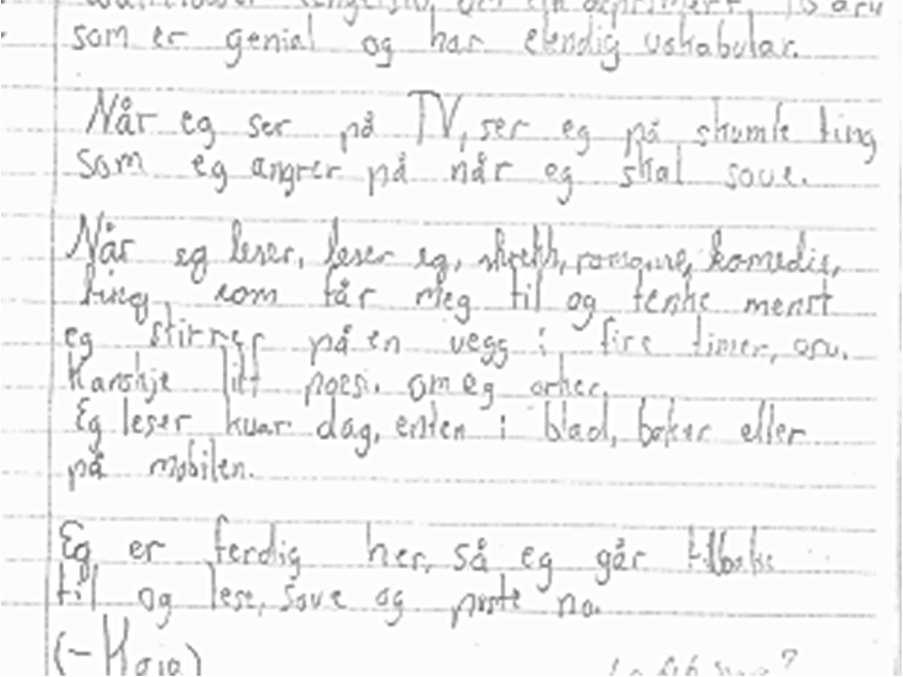 som er genial og har elendig vokabular.
Når eg ser på TV, ser eg på skumle ting
som eg angrer på når eg skal sove.
Når eg leser, leser eg, skrekk, romanse, komedie,
ting, som får meg til og tenke menst
eg stirrer på en vegg i fire timer, osv.
Kanskje litt poesi. om eg orker.
Eg leser kvar dag, enten i blad, bøker eller
på mobilen.
Eg er ferdig her, så eg går tilbake
til og lese, sove og puste no.
(- Kaja)